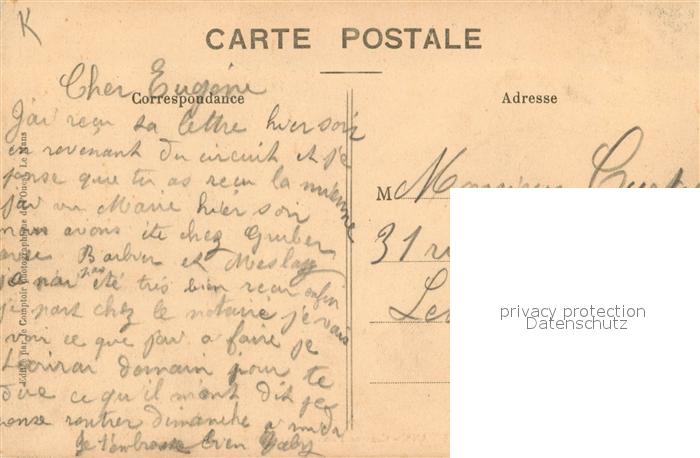 K
CARTE POSTALE
Correspondance
Adresse
Cher Eugène
J'ai reçu ta lettre hier soir
en revenant du circuit et je
pense que tu as reçu la mienne
j'ai vu Marie hier soir
nous avons été chez Gruber
avec Barbier et Meslay
je n'ai pas été très bien reçu enfin
je part chez le notaire je vais
voir ce que j'ai a faire je
t'ecrirai domain pour te
dire ce qu'il m'ont dit je
pense rentrer dimanche a midi
Je t'embrasse bien
M Monsieur
31 r
Le
Edité par le Comptoir photographique de l'Ouest, Le Mans
privacy protection
Datenschutz